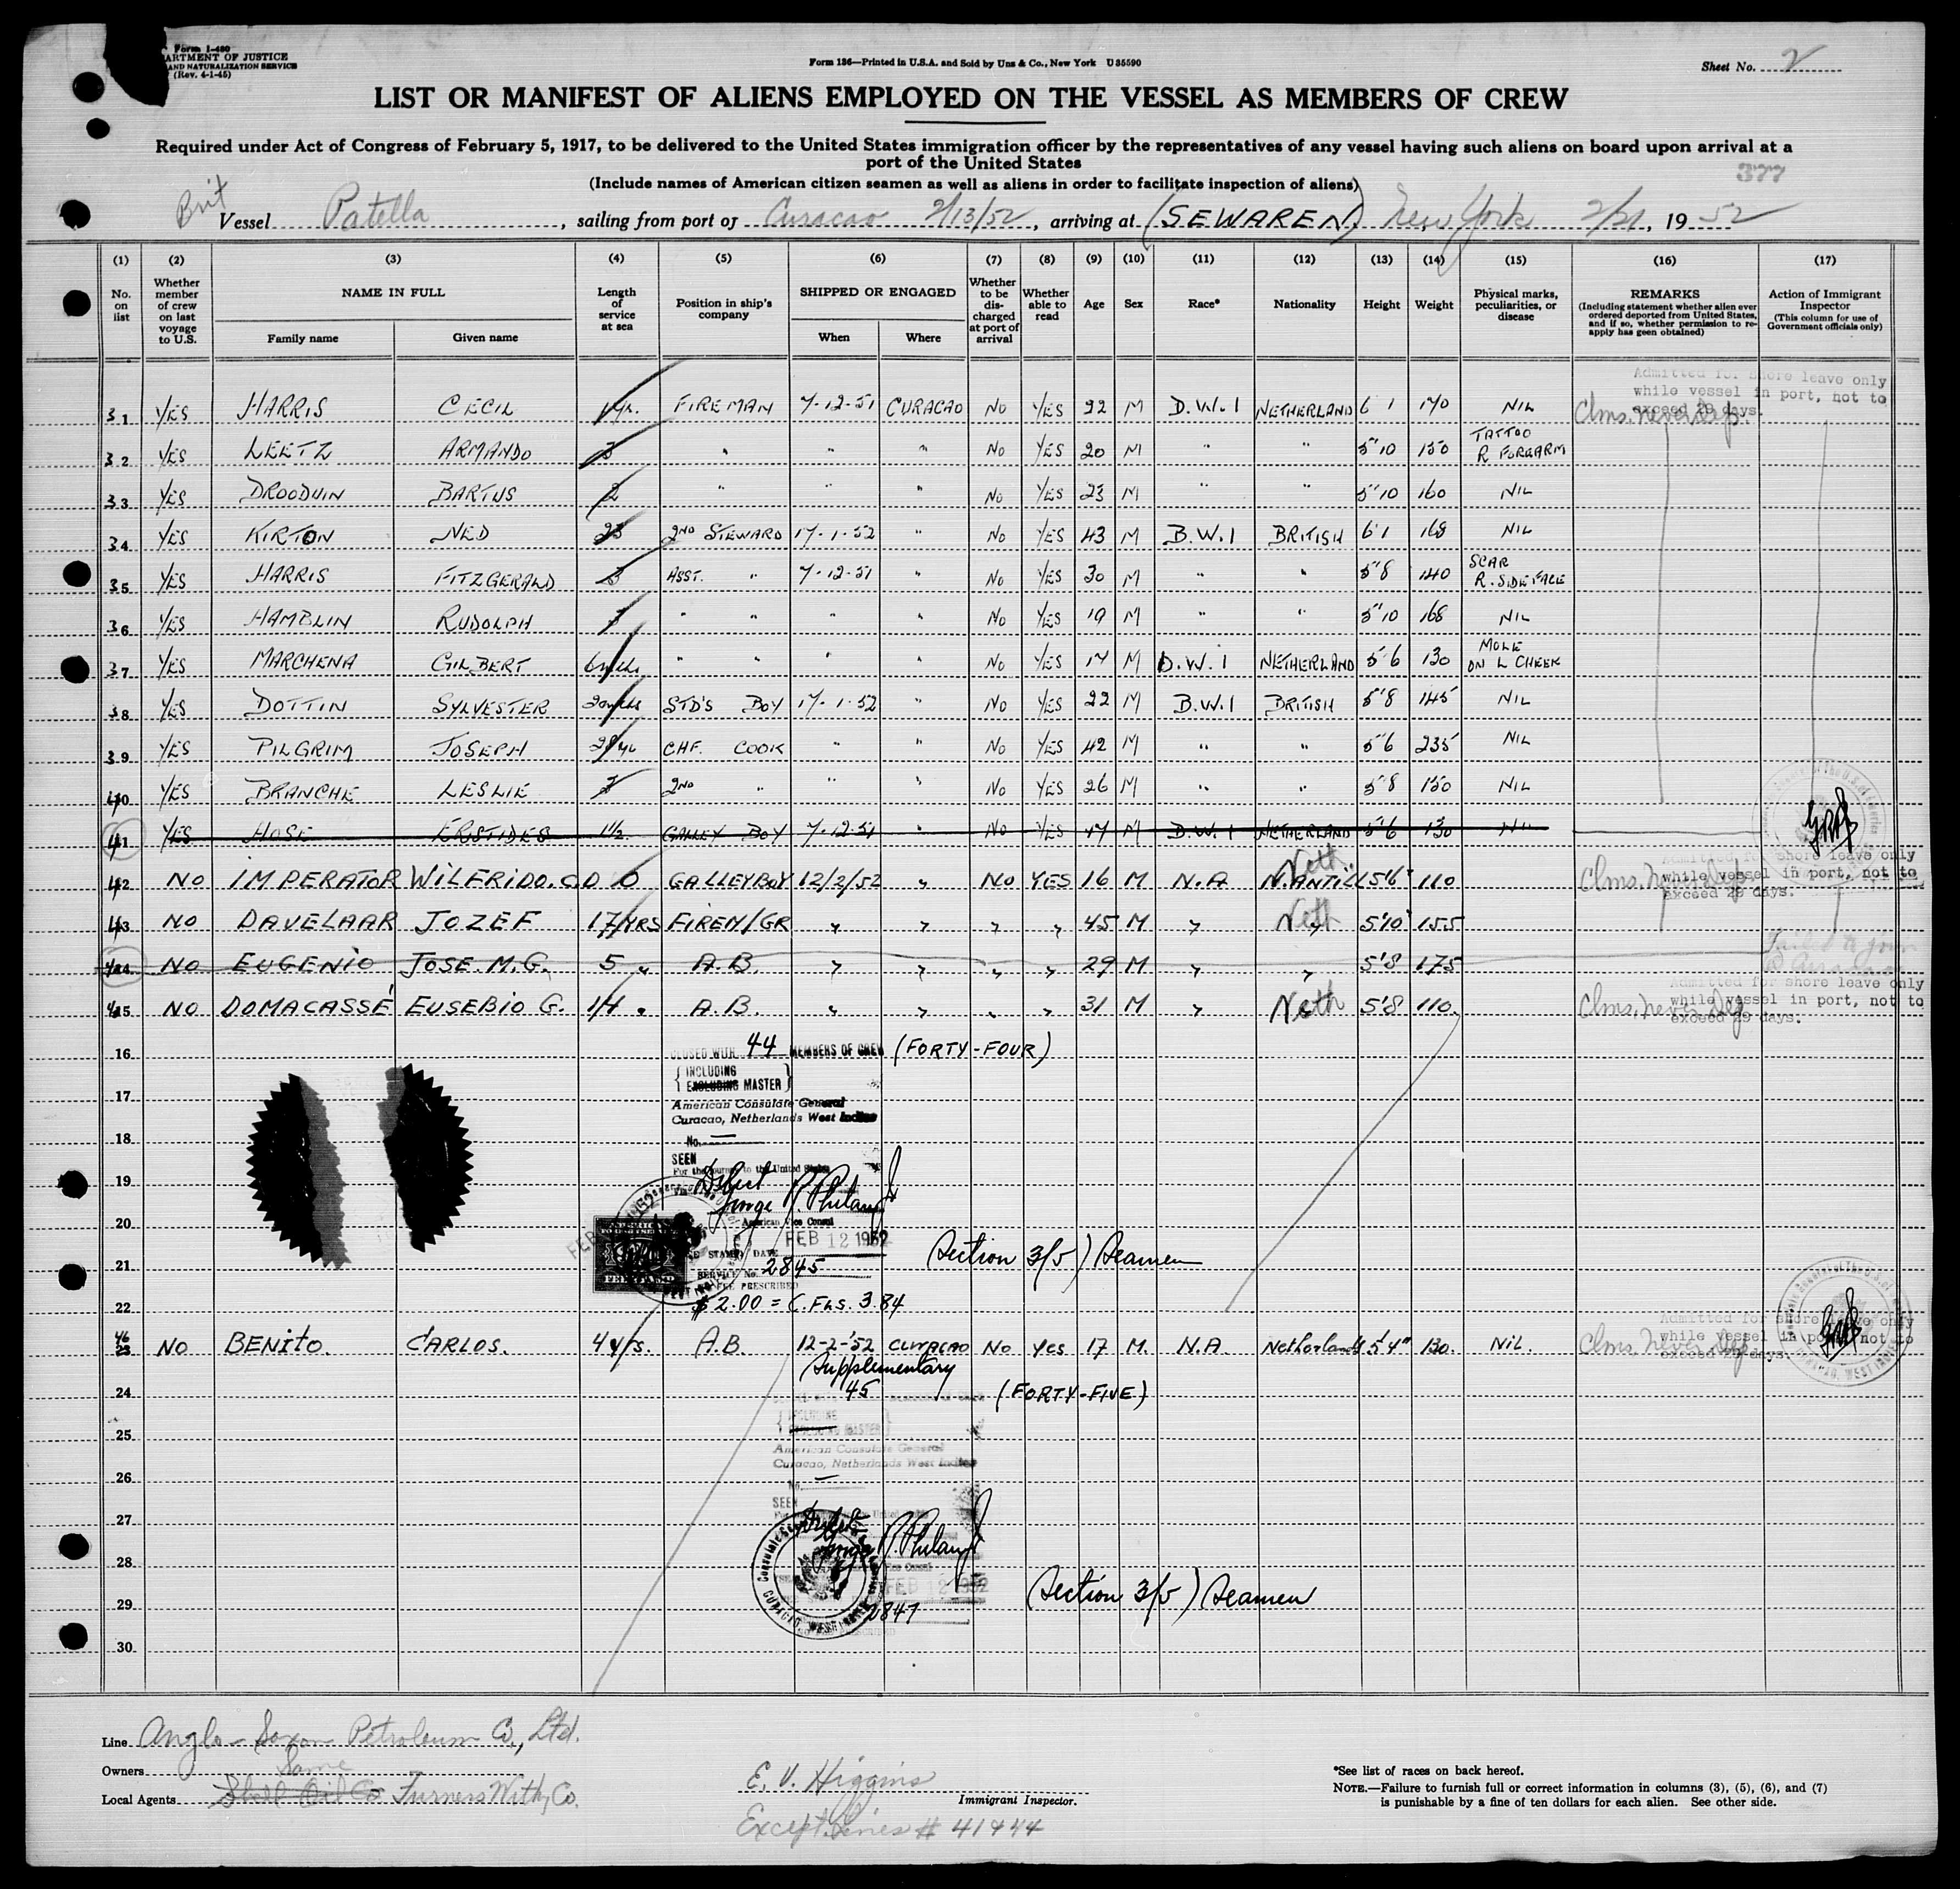 Form I-480
ARTMENT OF JUSTICE
AND NATURALIZATION SERVICE
(Rev. 4-1-45)
Form 136—Printed in U.S.A. and Sold by Unz & Co., New York U35590
Sheet No. 2
LIST OR MANIFEST OF ALIENS EMPLOYED ON THE VESSEL AS MEMBERS OF CREW
Required under Act of Congress of February 5, 1917, to be delivered to the United States immigration officer by the representatives of any vessel having such aliens on board upon arrival at a
port of the United States
(Include names of American citizen seamen as well as aliens in order to facilitate inspection of aliens)
377
Brit Vessel Patella, sailing from port of Curacao 2/13/52, arriving at (SEWAREN) New York 2/21, 1952
(1) (2) (3) (4) (5) (6) (7) (8) (9) (10) (11) (12) (13) (14) (15) (16) (17)
No. on list
Whether member of crew on last voyage to U.S.
NAME IN FULL
Family name
Given name
Length of service at sea
Position in ship's company
SHIPPED OR ENGAGED
When
Where
Whether to be discharged at port of arrival
Whether able to read
Age
Sex
Race*
Nationality
Height
Weight
Physical marks, peculiarities, or disease
REMARKS
(Including statement whether alien ever ordered deported from United States, and if so, whether permission to re-apply has been obtained)
Action of Immigrant Inspector
(This column for use of Government officials only)
Admitted for shore leave only
while vessel in port, not to
exceed 29 days.
31 YES HARRIS CECIL 1 yr. FIREMAN 7-12-51 CURACAO NO YES 22 M D.W.I NETHERLAND 6 1 170 NIL Clms. never dep.
32 YES LEETZ ARMANDO 3 " " " NO YES 20 M " " 5'10 150 TATTOO R FOREARM
33 YES DROODUIN BARTUS 2 " " " NO YES 23 M " " 5'10 160 NIL
34 YES KIRTON NED 23 2ND STEWARD 17-1-52 " NO YES 43 M B.W.I BRITISH 6'1 168 NIL
35 YES HARRIS FITZGERALD 3 ASST. " 7-12-51 " NO YES 30 M " " 5'8 140 SCAR R. SIDE FACE
36 YES HAMBLIN RUDOLPH " " " " NO YES 19 M " " 5'10 168 NIL
37 YES MARCHENA GILBERT 6 mths " " " " NO YES 17 M D.W.I NETHERLAND 5'6 130 MOLE ON L CHEEK
38 YES DOTTIN SYLVESTER STD'S BOY 17-1-52 " NO YES 22 M B.W.I BRITISH 5'8 145 NIL
39 YES PILGRIM JOSEPH CHF. COOK " " NO YES 42 M " " 5'6 235 NIL
40 YES BRANCHE LESLIE 7 2ND " " " NO YES 26 M " " 5'8 150 NIL
41 YES HOSE ERISTIDES 1½ GALLEY BOY 7-12-51 " NO YES 47 M D.W.I NETHERLAND 5'6 130 NIL
Admitted for shore leave only
while vessel in port, not to
exceed 29 days.
42 NO IMPERATOR WILFRIDO.C.D 0 GALLEYBOY 12/2/52 " NO YES 16 M N.A N.ANTILL Neth. 5'6" 110 Clms. never Dep.
43 NO DAVELAAR JOZEF 17 YRS FIREM/GR " " " " 45 M " Neth 5'10" 155
44 NO EUGENIO JOSE. M.G. 5 " A.B. " " " " 29 M " " 5'8 175 Failed to join @ Curacao
Admitted for shore leave only
while vessel in port, not to
exceed 29 days.
45 NO DOMACASSÉ EUSEBIO G. 14 " A.B. " " " " 31 M " Neth 5'8 110. Clms. never Dep
16
CLOSED WITH 44 MEMBERS OF CREW (FORTY-FOUR)
{ INCLUDING
EXCLUDING MASTER }
17
American Consulate General
Curacao, Netherlands West Indies
18
No. —
SEEN
For the journey to the United States
19
George P. Philam
20
American Vice Consul
FEB 12 1952
STAMP DATE
21
SERVICE No. 2845
Section 3(5) Seamen
FEE PRESCRIBED
22
$2.00 = C.Fls. 3.84
Admitted for shore leave only
while vessel in port, not to
exceed 29 days.
46 23 NO BENITO. CARLOS. 4 yrs. A.B. 12-2-'52 CURACAO No Yes 17 M. N.A. Netherlands 5'4" 130. NIL. Clms. never Dep
Supplementary
24
45 (FORTY-FIVE)
{ INCLUDING
EXCLUDING MASTER }
25
American Consulate General
Curacao, Netherlands West Indies
26
No. —
SEEN
27
George P. Philam
28
Vice Consul
FEB 12 1952
Section 3(5) Seamen
29
2847
30
Line Anglo-Saxon Petroleum Co., Ltd.
Owners Same
Local Agents Shell Oil Co Turners With, Co.
E. V. Higgins
Immigrant Inspector.
Except lines # 41 & 44
*See list of races on back hereof.
NOTE.—Failure to furnish full or correct information in columns (3), (5), (6), and (7)
is punishable by a fine of ten dollars for each alien. See other side.